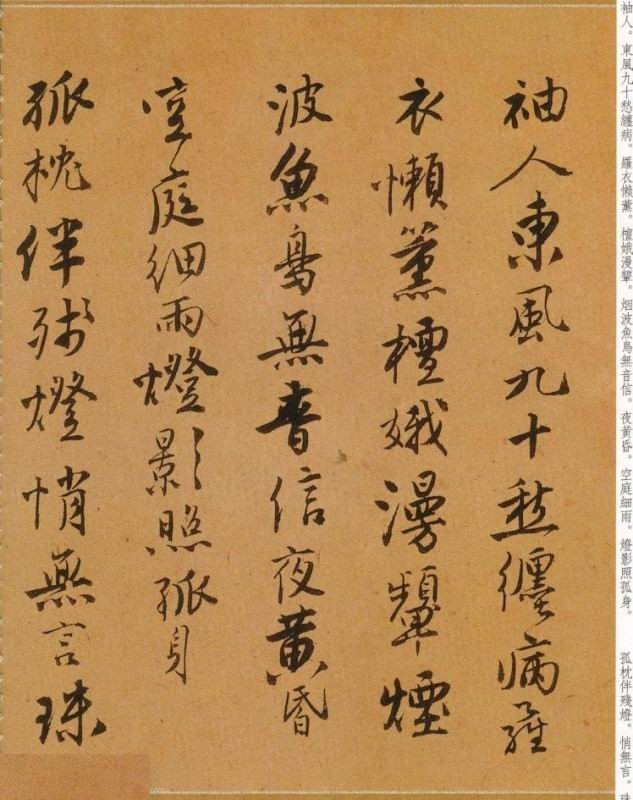 袖人。東風九十愁纏病。羅衣懶薰。檀娥漫顰。烟波魚鳥無音信。夜黄昏。空庭細雨。燈影照孤身。
孤枕伴殘燈。悄無言。珠
袖人東風九十愁纏病羅
衣懶薰檀娥漫顰煙
波魚鳥無音信夜黄昏
空庭細雨燈影照孤身
孤枕伴殘燈悄無言珠